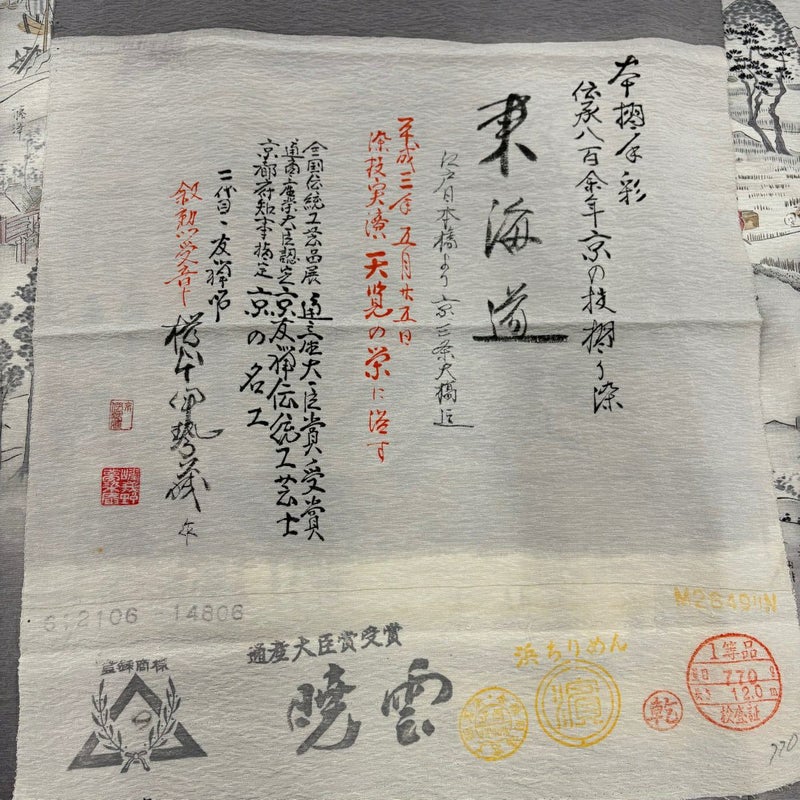 本摺手彩
伝承八百余年京の技摺り染
東海道
江戸日本橋より京三条大橋迄
平成三年五月廿五日
染技実演天覧の栄に浴す
全国伝統工芸品展通産大臣賞受賞
通商産業大臣認定京友禅伝統工芸士
京都府知事指定京の名工
二代目・友禅師
叙勲受章
作
612106-14806
通産大臣賞受賞
登録商標
暁雲
浜ちりめん
濱
乾
1等品
770g
12.0m
検査証
770